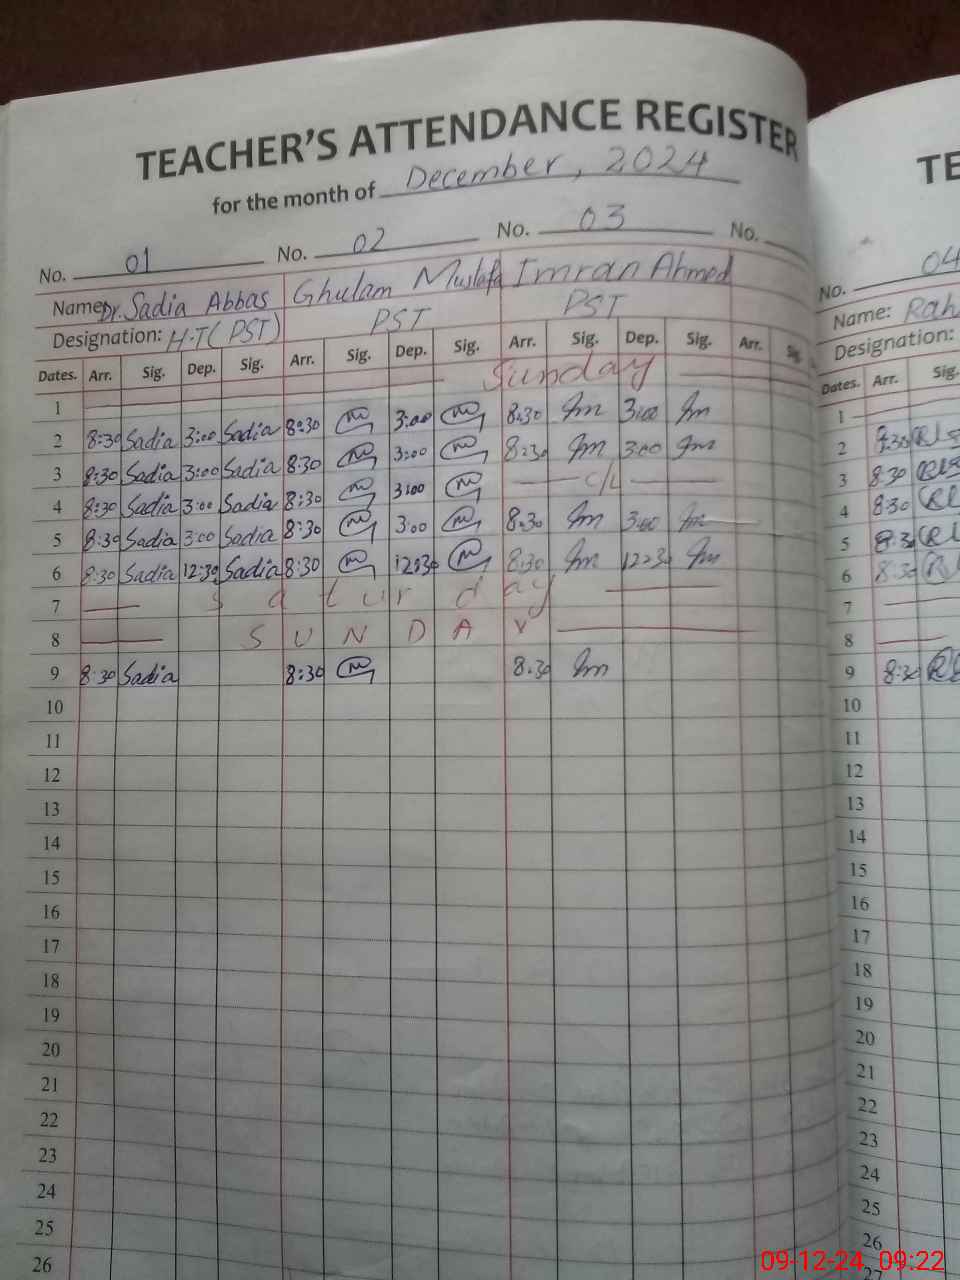 TEACHER'S ATTENDANCE REGISTER
for the month of December, 2024
No. 01 No. 02 No. 03 No.
Name: Dr. Sadia Abbas Ghulam Mustafa Imran Ahmed
Designation: H.T (PST) PST PST
Dates. Arr. Sig. Dep. Sig. Arr. Sig. Dep. Sig. Arr. Sig. Dep. Sig. Arr. Sig.
1 Sunday
2 8:30 Sadia 3:00 Sadia 8:30 3:00 8:30 3:00
3 8:30 Sadia 3:00 Sadia 8:30 3:00 8:30 3:00
4 8:30 Sadia 3:00 Sadia 8:30 3:00 C/L
5 8:30 Sadia 3:00 Sadia 8:30 3:00 8:30 3:00
6 8:30 Sadia 12:30 Sadia 8:30 12:30 8:30 12:30
7 Saturday
8 SUNDAY
9 8:30 Sadia 8:30 8:30
10
11
12
13
14
15
16
17
18
19
20
21
22
23
24
25
26
TE
No. 04
Name: Rah
Designation:
Dates. Arr. Sig.
1
2 8:30
3 8:30
4 8:30
5 8:30
6 8:30
7
8
9 8:30
10
11
12
13
14
15
16
17
18
19
20
21
22
23
24
25
26
27
09-12-24, 09:22